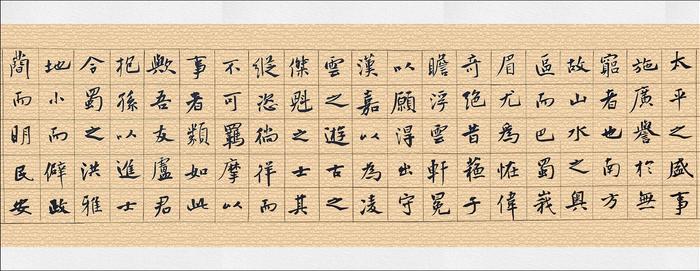 太平之盛事
施廣譽於無
窮者也南方
故山水之奥
區而巴蜀峩
眉尤為恠偉
奇絶昔蘓子
瞻浮雲軒冕
以願得出守
漢嘉以為凌
雲之遊古之
傑魁之士其
縱恣徜徉而
不可羈摩以
事者類如此
歟吾友盧君
抱孫以進士
令蜀之洪雅
地小而僻政
簡而明民安